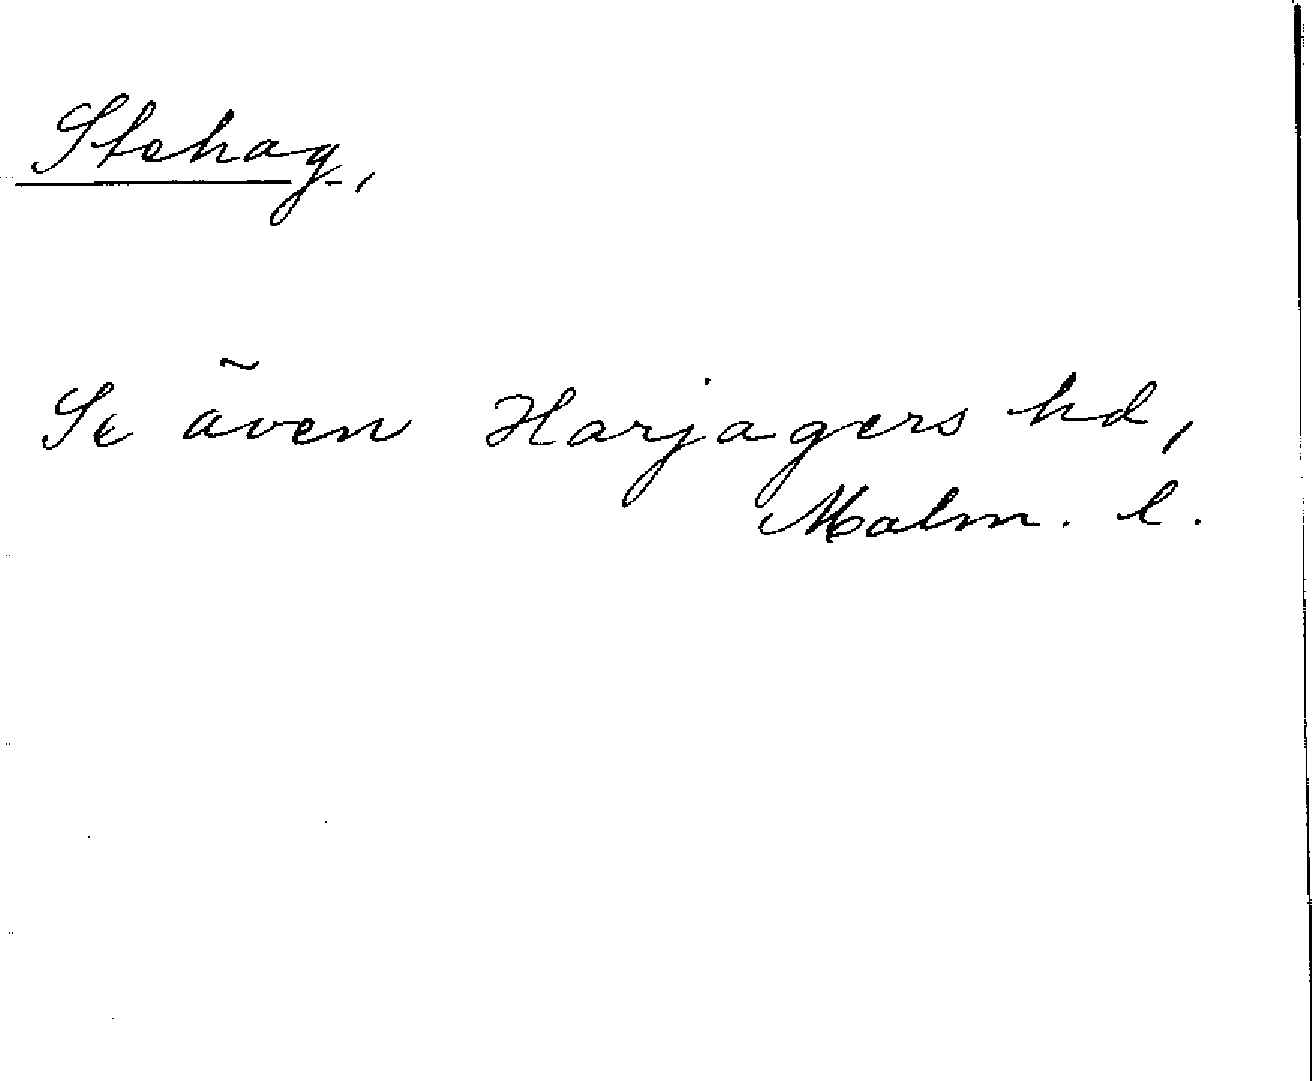 Stehag,
Se även Harjagers hd,
Malm. l.